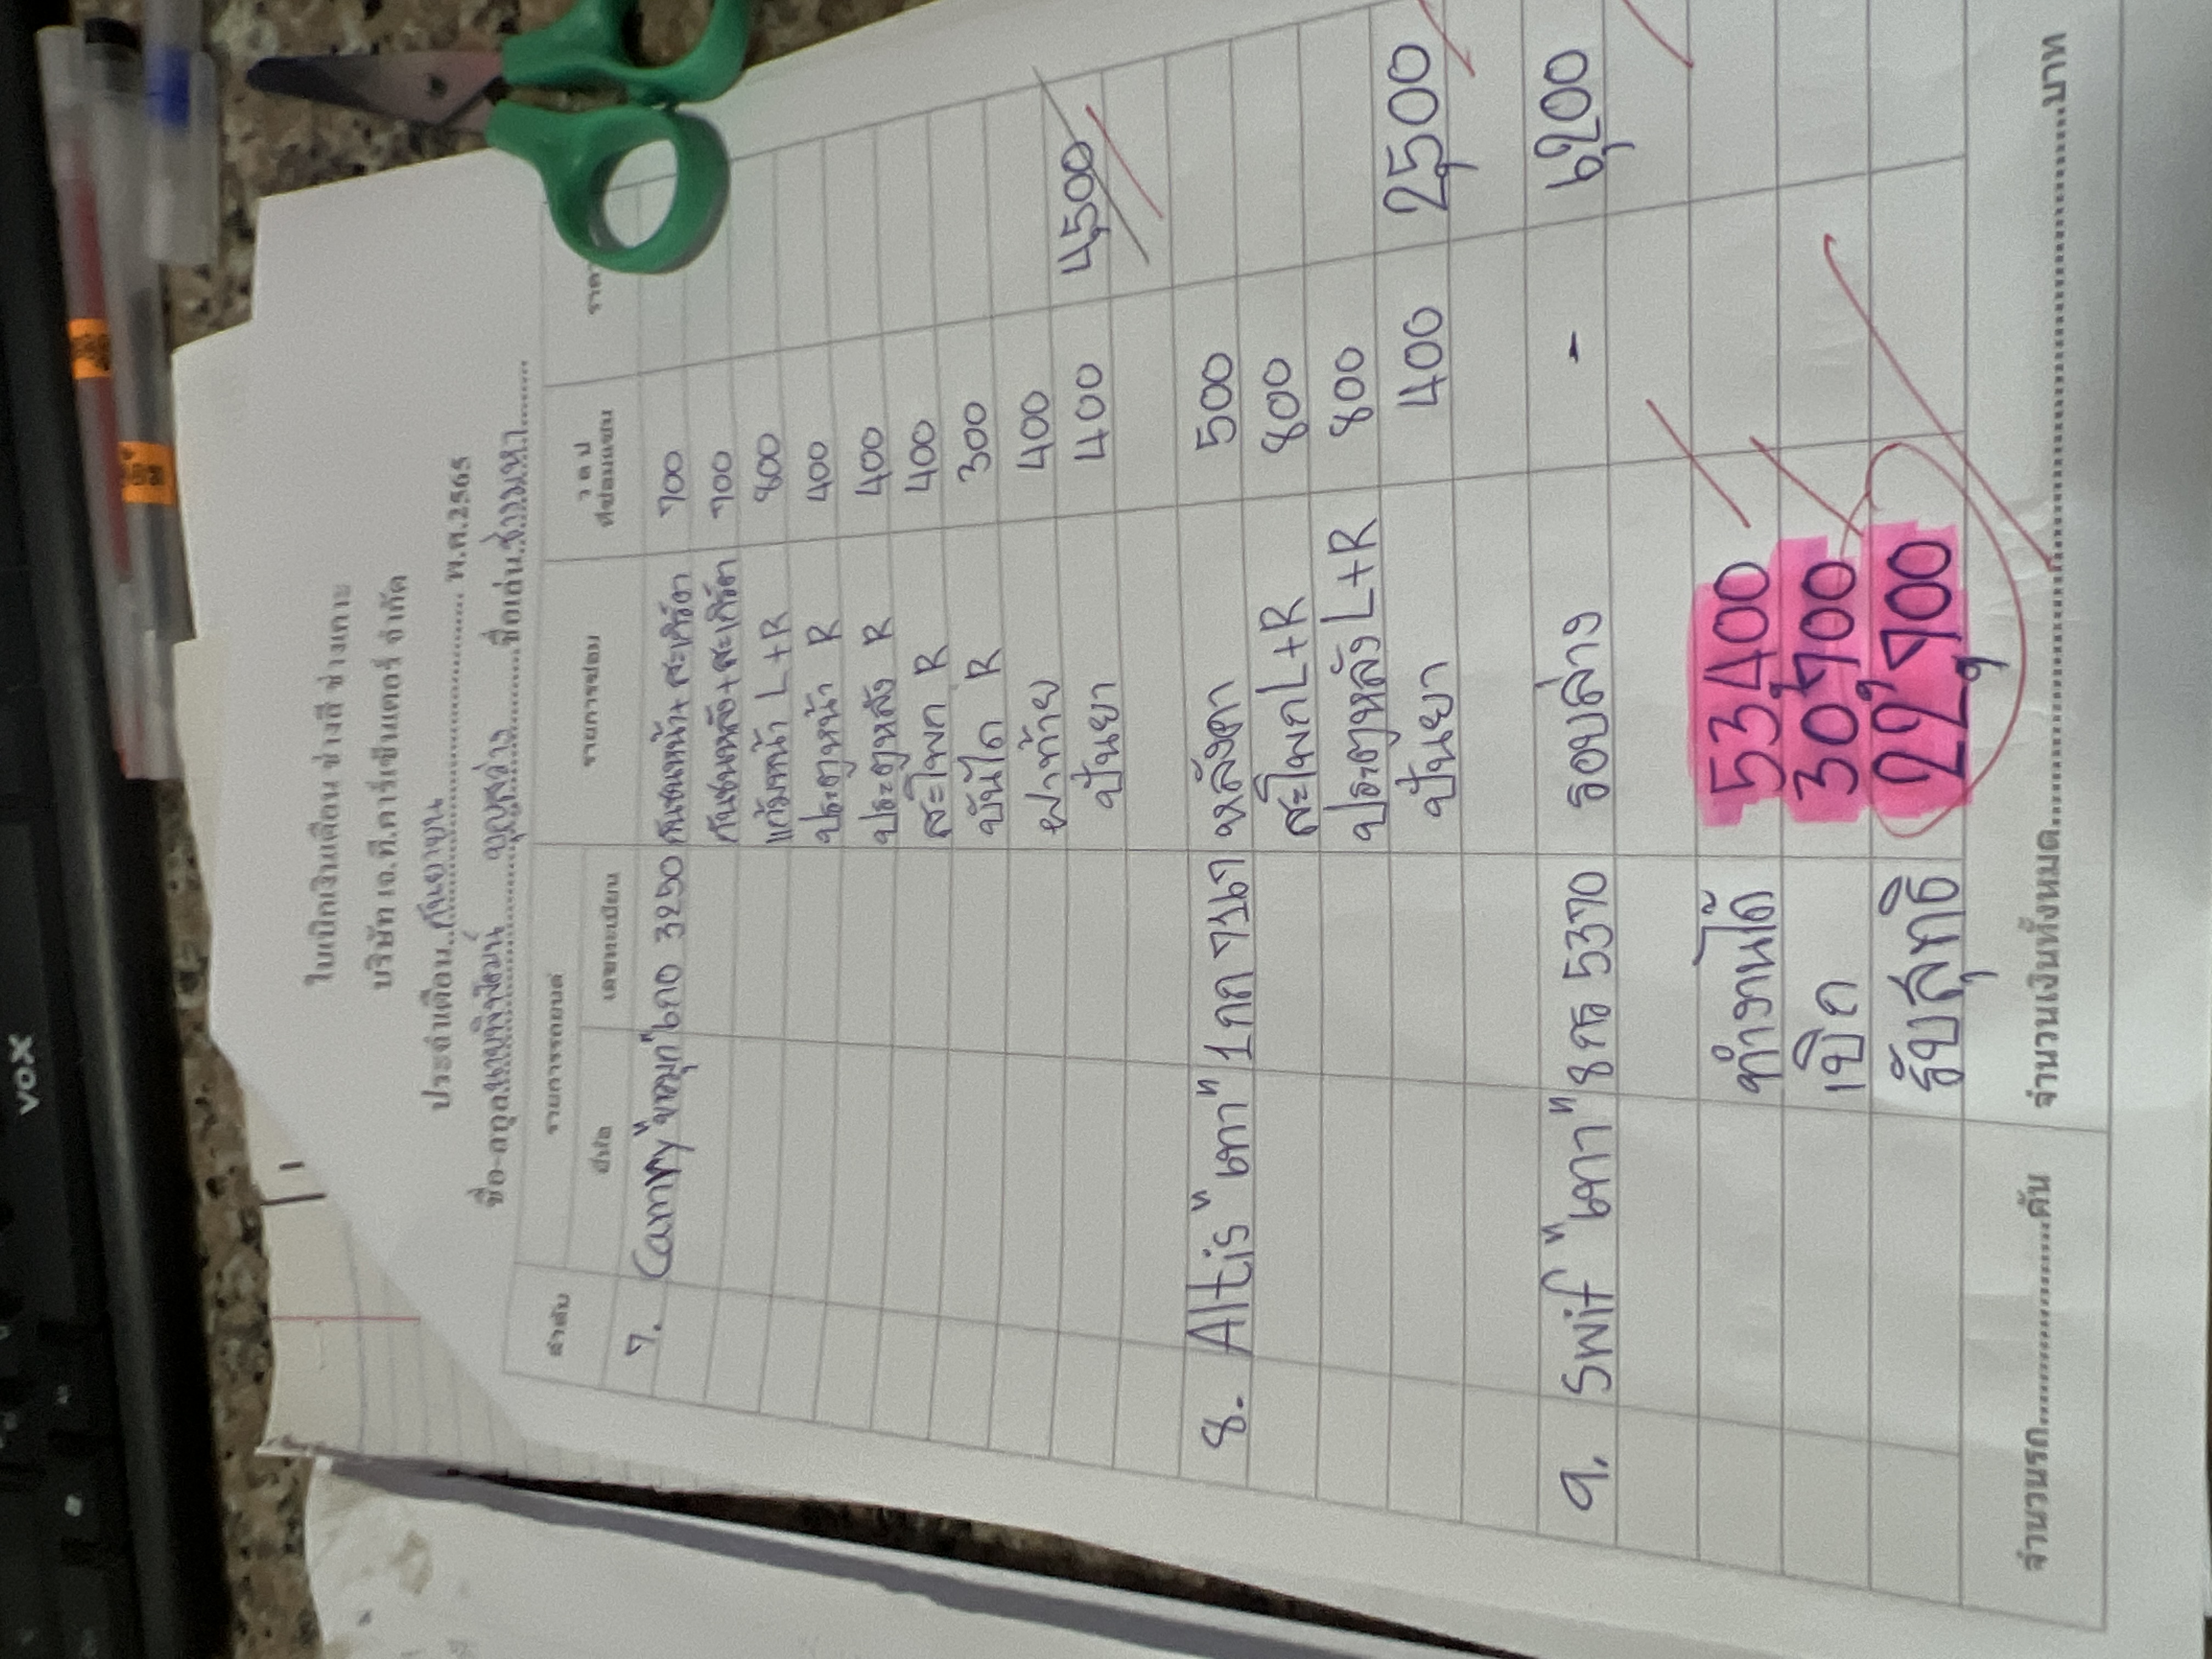 ใบเบิกเงินเดือน ช่างสี ช่างเคาะ
บริษัท เอ.ที.คาร์เซ็นเตอร์ จำกัด
ประจำเดือน..กันยายน.......... พ.ศ.2565
ชื่อ-สกุล.......... บุญสว่าง ..........ชื่อเล่น..ช่างมหา..........
ลำดับ รายการรถยนต์ รายการซ่อม ว ด ป ราคา
ยี่ห้อ เลขทะเบียน
7. Camry "ขาวมุก" 3250 กันชนหน้า+สะเกิร์ตา 700
กันชนหลัง+สะเกิร์ตา 700
แก้มหน้า L+R 800
ประตูหน้า R 400
ประตูหลัง R 400
สะโพก R 400
บันได R 300
ฝาท้าย 400
ปั้นยา 400 4,500
8. Altis "เทา" 1กก หลังคา 500
สะโพก L+R 800
ประตูหลัง L+R 800
ปั้นยา 400 2,500
9. Swif "เทา" 8กธ 5370 รอบล่าง - 6,200
ทำงานได้ 53,400
เบิก 30,700
รับสุทธิ 22,700
จำนวนรถ..........คัน จำนวนเงินทั้งหมด..........บาท
VOX